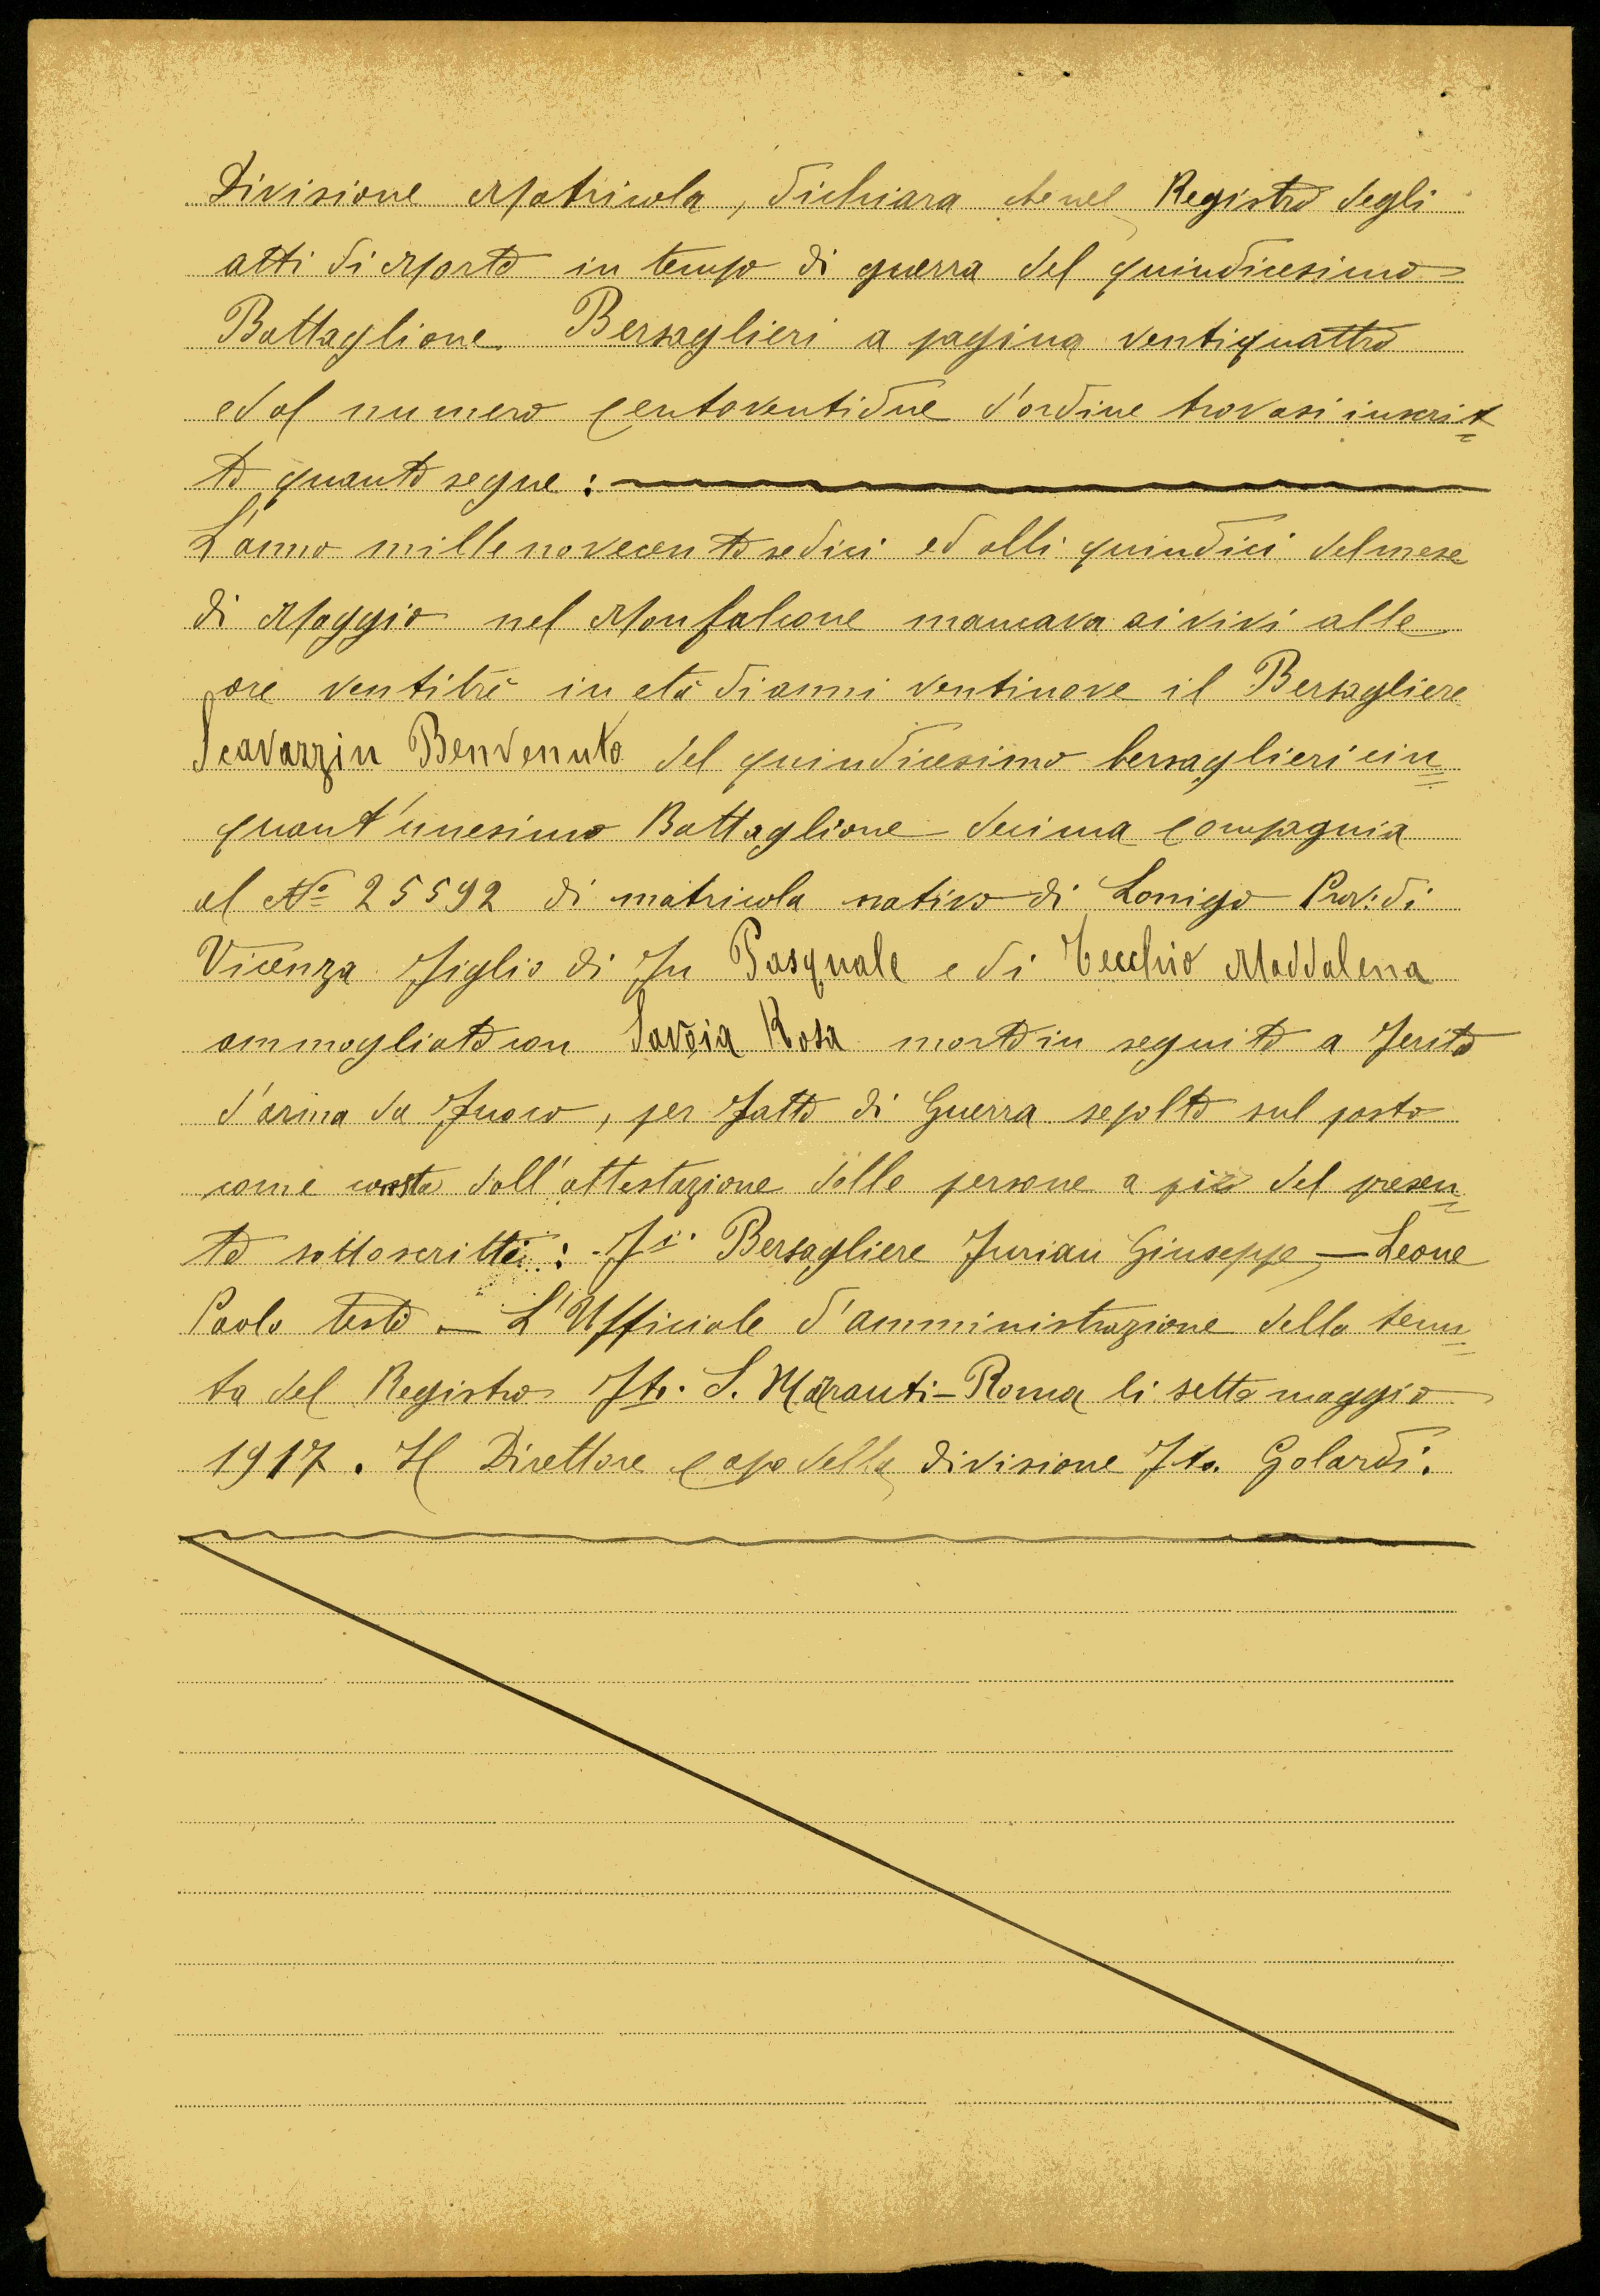 Divisione Matricola, dichiara che nel Registro degli
atti di Morte in tempo di guerra del quindicesimo
Battaglione Bersaglieri a pagina ventiquattro
ed al numero centoventidue d'ordine trovasi inscrit=
to quanto segue:
L'anno millenovecentosedici ed alli quindici del mese
di Maggio nel Monfalcone mancava ai vivi alle
ore ventitrè in età di anni ventinove il Bersagliere
Scavazzin Benvenuto del quindicesimo bersaglieri cin=
quant'unesimo Battaglione decima compagnia
al No 25592 di matricola nativo di Lonigo Prov: di
Vicenza figlio di fu Pasquale e di Tecchio Maddalena
ammogliato con Savoia Rosa morto in seguito a ferite
d'arma da fuoco, per fatto di Guerra sepolto sul posto
come consta dall'attestazione delle persone a piè del presen=
te sottoscritte: Fi: Bersagliere Furian Giuseppe — Leone
Paolo teste — L'Ufficiale d'amministrazione della tenu=
ta del Registro Fto. S. Maranti - Roma li sette maggio
1917. Il Direttore capo della divisione Fto. Golardi.